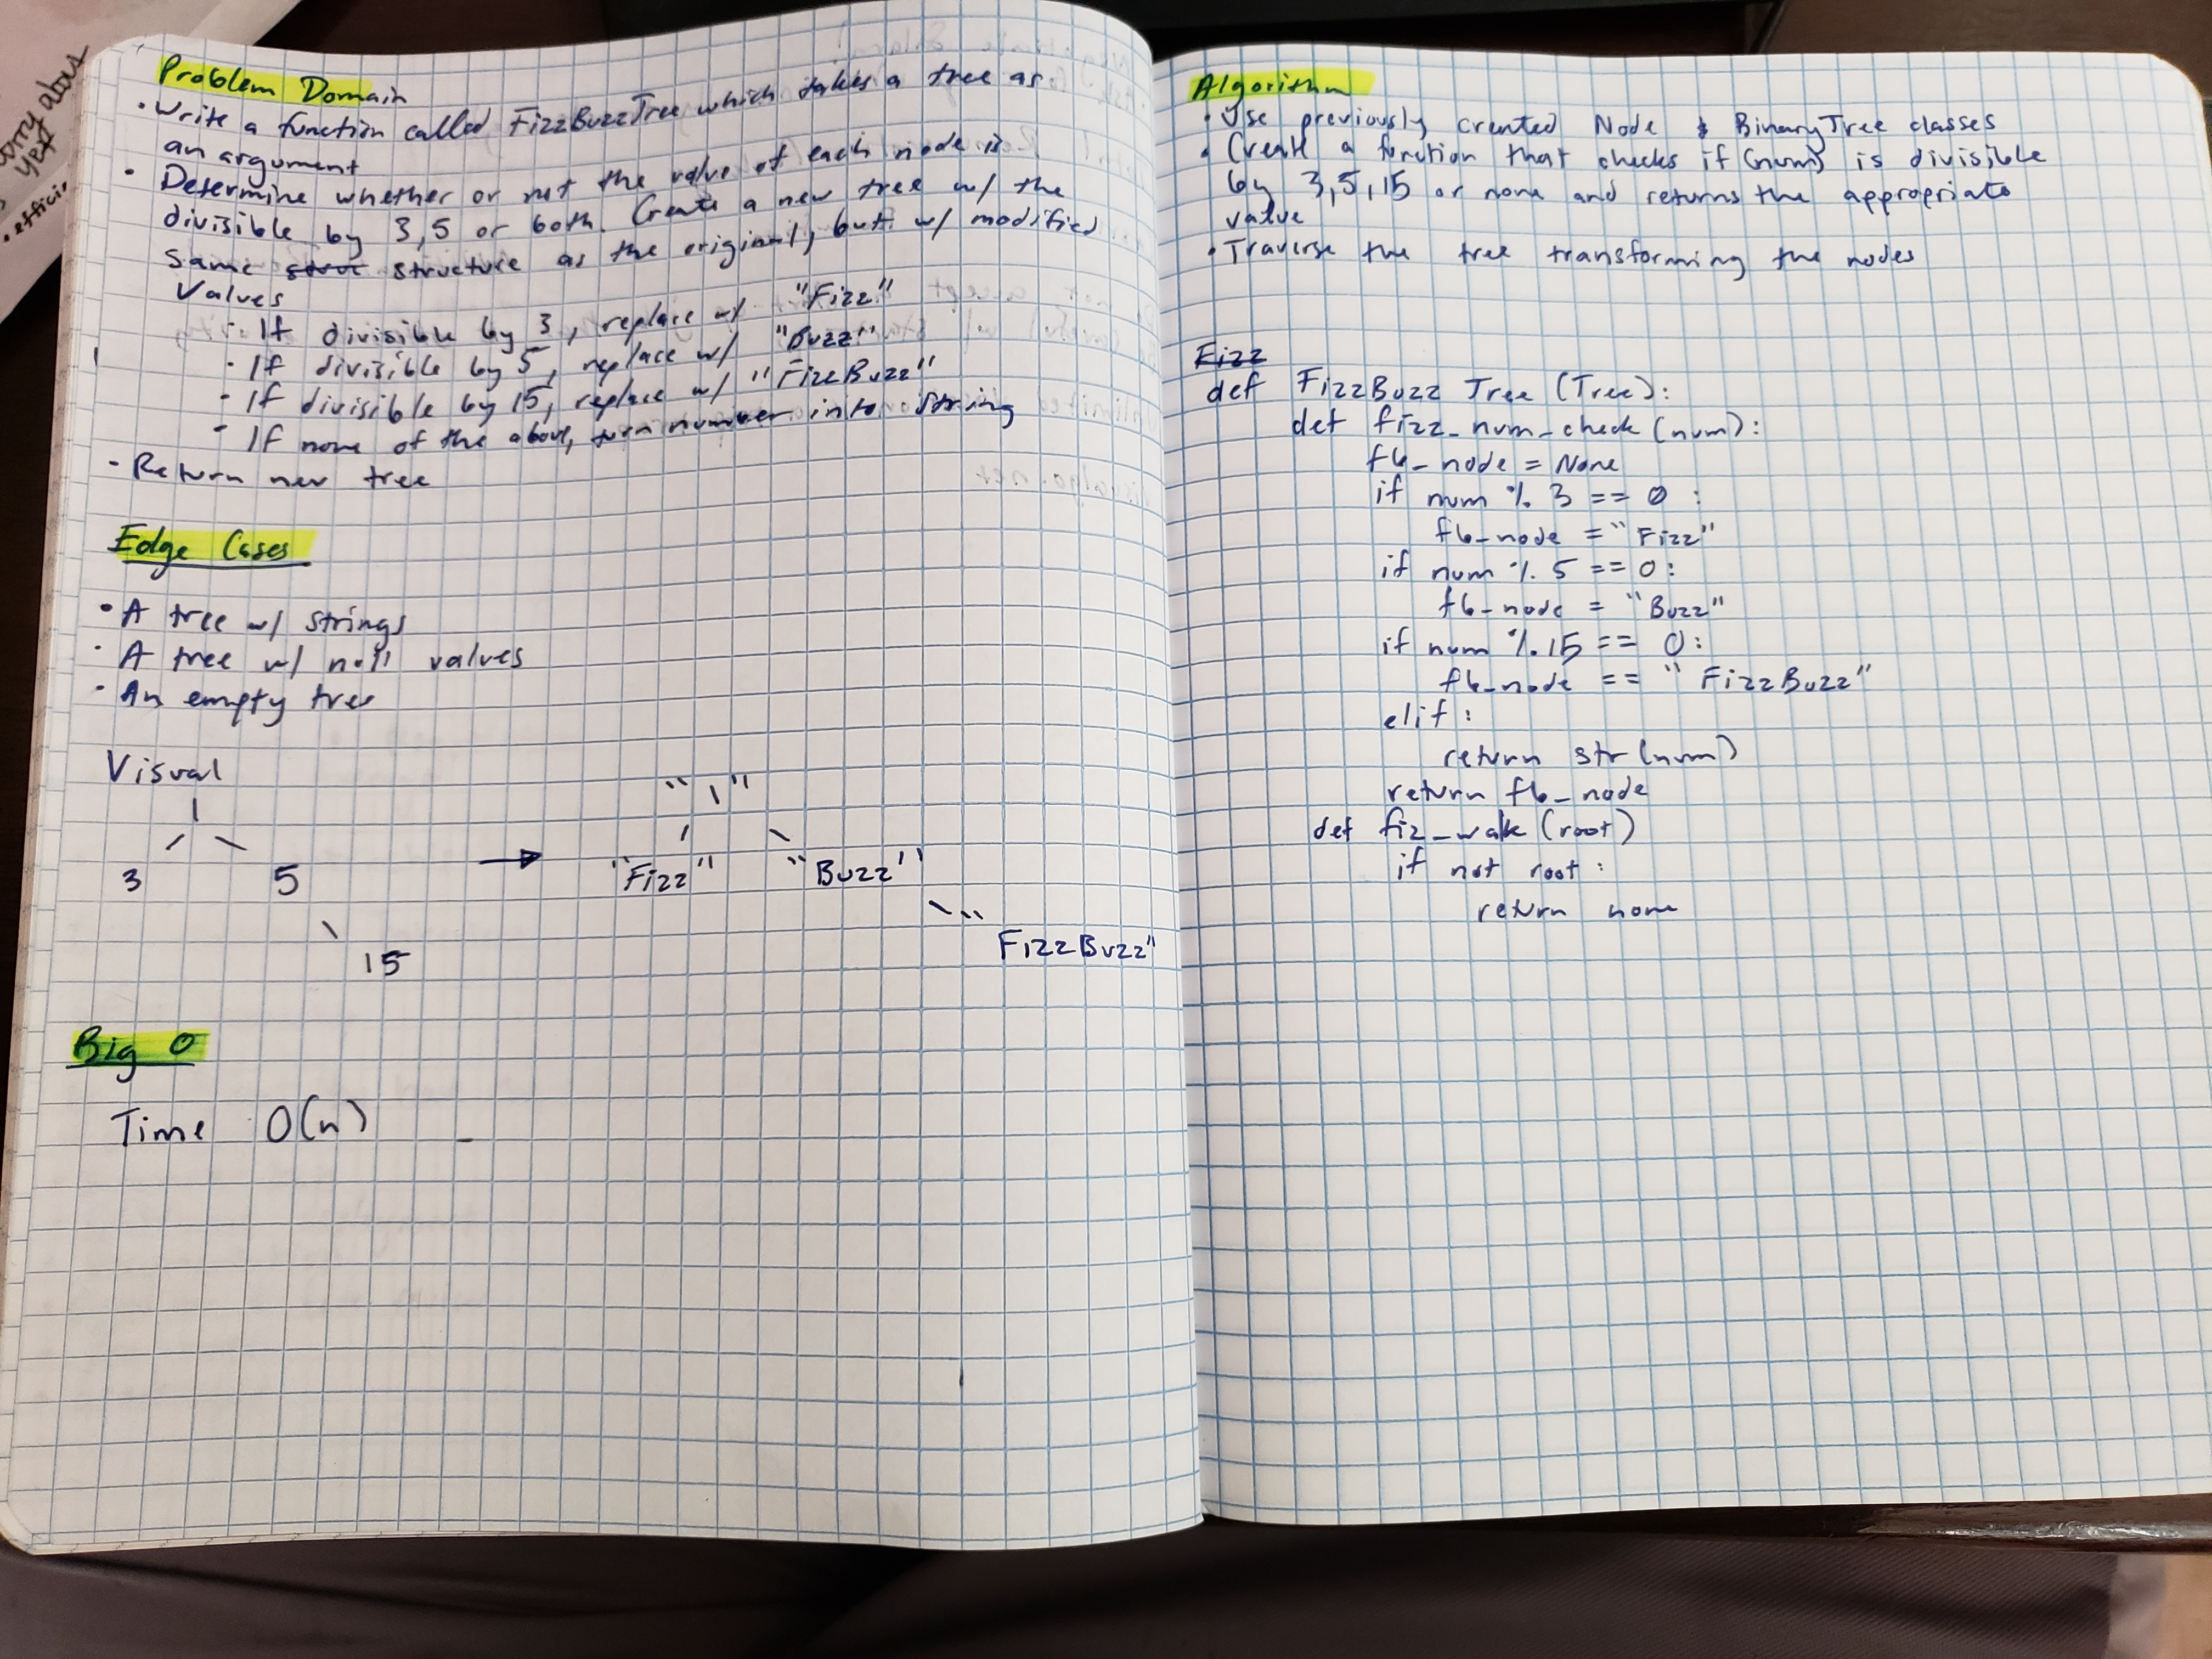 Problem Domain
• Write a function called FizzBuzzTree which takes a tree as
an argument
• Determine whether or not the value of each node is
divisible by 3, 5 or both. Create a new tree w/ the
same structure as the original, but w/ modified
Values
• If divisible by 3, replace w/ "Fizz"
• If divisible by 5, replace w/ "Buzz"
• If divisible by 15, replace w/ "FizzBuzz"
• If none of the above, turn number into string
• Return new tree
Edge Cases
• A tree w/ strings
• A tree w/ null values
• An empty tree
Visual
1
3 5
15
"1"
"Fizz" "Buzz"
"FizzBuzz"
Big O
Time O(n)
Algorithm
• Use previously created Node & BinaryTree classes
• Create a function that checks if (num) is divisible
by 3, 5, 15 or none and returns the appropriate
value
• Traverse the tree transforming the nodes
Fizz
def FizzBuzz Tree (Tree):
def fizz_num_check (num):
fb_node = None
if num % 3 == 0:
fb_node = "Fizz"
if num % 5 == 0:
fb_node = "Buzz"
if num % 15 == 0:
fb_node == "FizzBuzz"
elif:
return str(num)
return fb_node
def fiz_walk (root)
if not root:
return none
worry about
yet
• effici